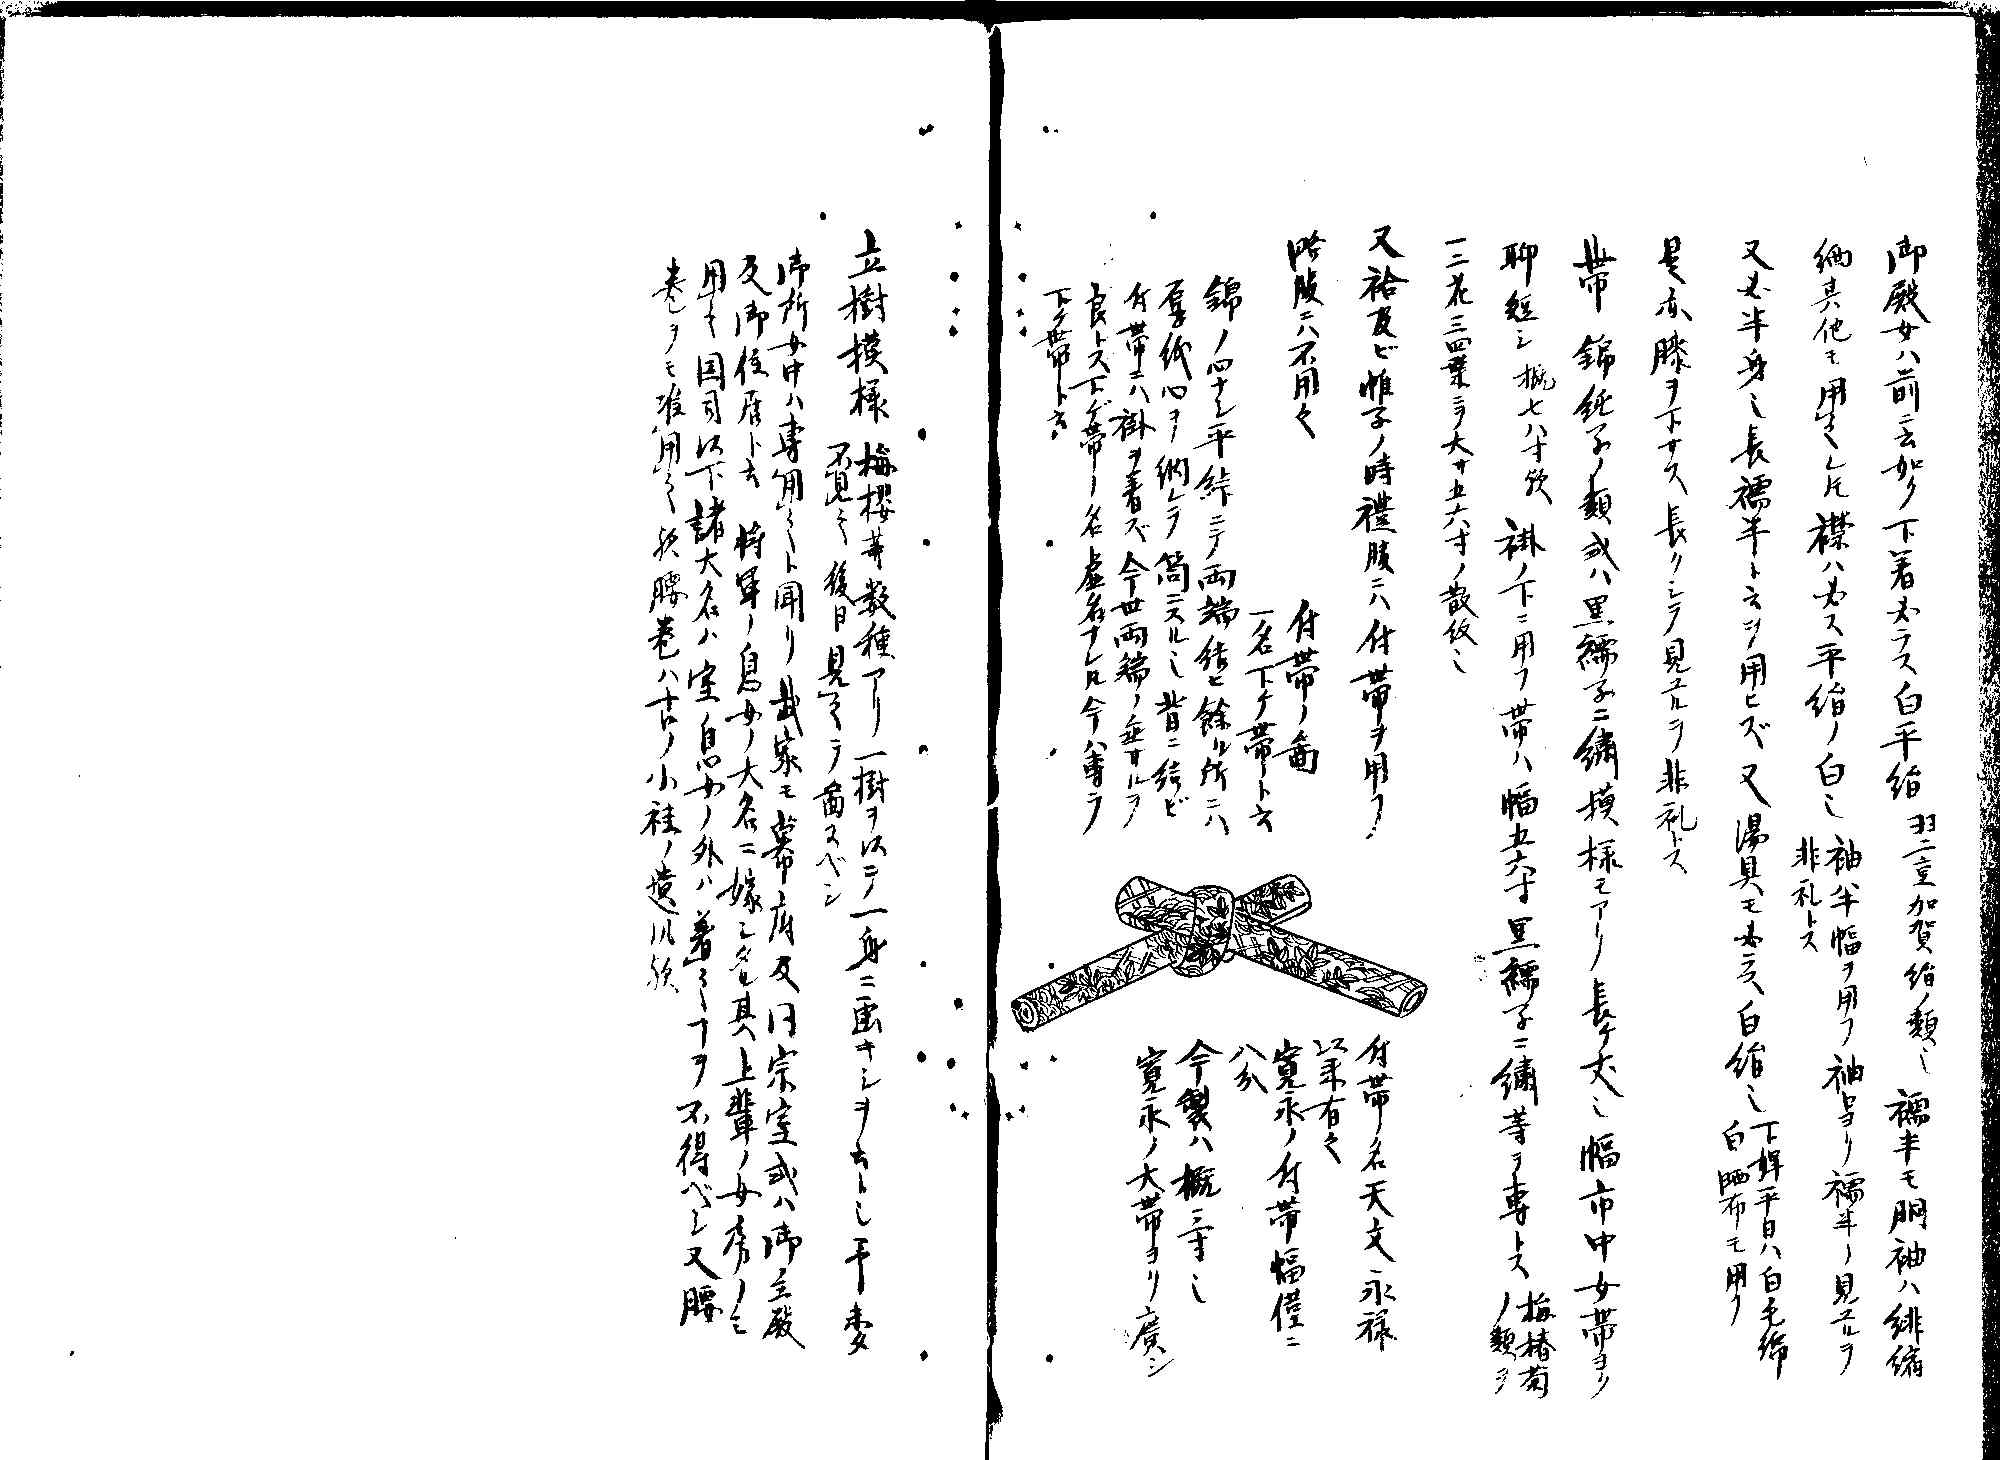 御殿女ハ前ニ云如ク下着必ラス白平絹 羽二重加賀絹ノ類也 襦半モ胴袖ハ緋縮
緬其他モ用フレトモ襟ハ必ス平絹ノ白也 袖半幅ヲ用フ袖ヨリ襦半ノ見ユルヲ
非礼トス
又必半身也長襦半ト云ヲ用ヒズ又湯具モ必ス白絹也 下輩平日ハ白毛綿
白晒布モ用フ
是亦膝ヲ下サス長クシテ見ユルヲ非礼トス
帯 錦純子ノ類或ハ黒繻子ニ繍模様モアリ長ケ丈也幅市中女帯ヨリ
聊短シ 概七八寸歟 褂ノ下ニ用フ帯ハ幅五六寸黒繻子ニ繍等ヲ専トス 梅椿菊
ノ類ヲ
一二花三四葉ニテ大サ五六寸ノ散紋也
又袷及ビ帷子ノ時禮服ニハ付帯ヲ用フ
略服ニハ不用之
付帯ノ圖
一名下ケ帯ト云
錦ノ四ナシ平絎ニテ両端結ヒ餘ル所ニハ
厚紙心ヲ納レテ筒ニスル也背ニ結ビ
付帯ニハ褂ヲ着ズ今世両端ノ垂サルヲ
良トス下ゲ帯ノ名虚名ナレトモ今ハ専ラ
下ケ帯ト云
付帯ノ名天文永禄
以来有之
寛永ノ付帯幅僅ニ
八分
今製ハ概二寸也
寛永ノ大帯ヨリ廣シ
立樹模様 梅櫻等数種アリ一樹ヲ以テ一身ニ画キシヲ云ト也平妻
不見之後日見之テ圖スベシ
御所女中ハ専用之ト聞リ武家モ幕府及同宗室或ハ御主殿
及御住居ト云 将軍ノ息女ノ大名ニ嫁シ玉 其上輩ノ女房ノミ
用之国司以下諸大名ハ室息女ノ外ハ着之コヲ不得ベシ又腰
巻ヲモ准用之歟腰巻ハ古ノ小袿ノ遺風歟